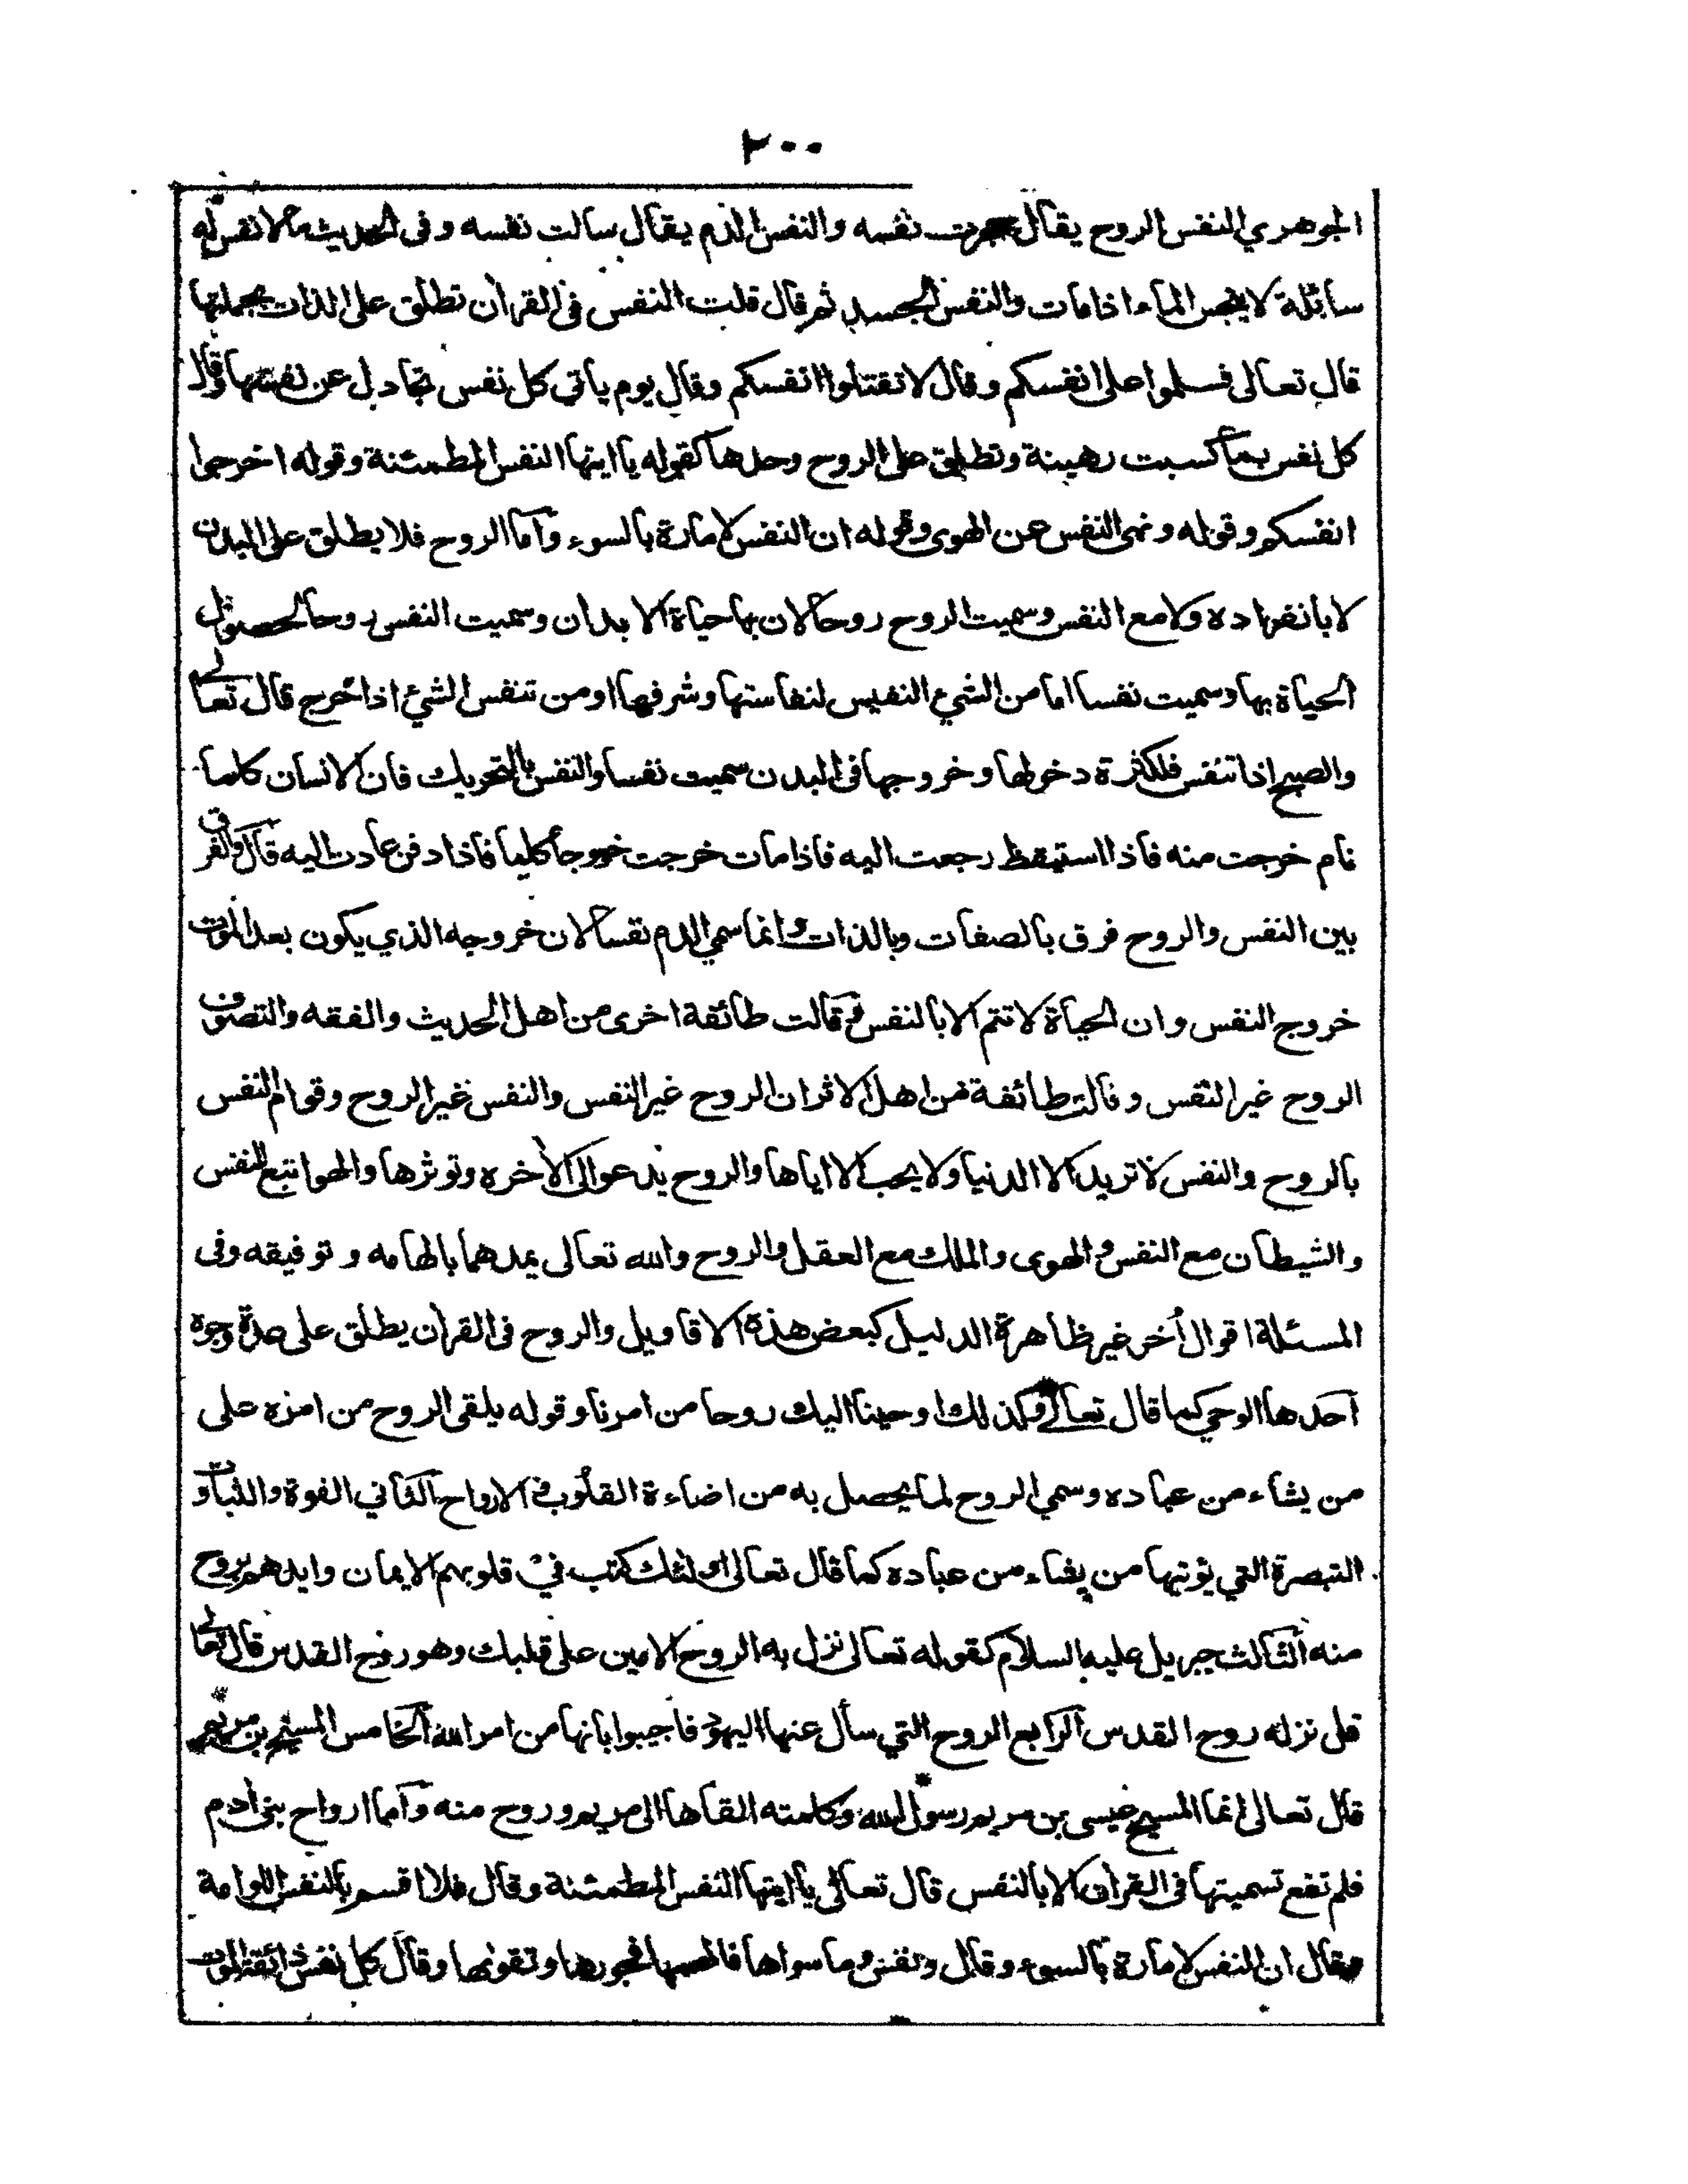 ٢٠٠
الجوهري النفس الروح يقال خرجت نفسه والنفس الدم يقال سالت نفسه وفى الحديث ما لا نفس له
سائلة لا ينجس الماء اذا مات والنفس الجسد ثم قال قلت النفس فى القران تطلق على الذات بجملتها
قال تعالى فسلموا على انفسكم وقال لا تقتلوا انفسكم وقال يوم ياتي كل نفس تجادل عن نفسها وقال
كل نفس بما كسبت رهينة وتطلق على الروح وحدها كقوله يا ايتها النفس المطمئنة وقوله اخرجوا
انفسكم وقوله ونهى النفس عن الهوى وقوله ان النفس لامارة بالسوء وآما الروح فلا يطلق على البدن
لا بانفراده ولا مع النفس وسميت الروح روحا لان بها حياة الابدان وسميت النفس روحا لحصول
الحياة بها وسميت نفسا اما من الشيء النفيس لنفاستها وشرفها او من تنفس الشيئ اذا خرج قال تعالى
والصبح اذا تنفس فلكثرة دخولها وخروجها فى البدن سميت نفسا والنفس بالتحريك فان الانسان كلما
نام خرجت منه فاذا استيقظ رجعت اليه فاذا مات خرجت خروجا كليا فاذا دفن عادت اليه قال والفرق
بين النفس والروح فرق بالصفات وبالذات وانما سمي الدم نفسا لان خروجه الذي يكون بعد الموت
خروج النفس وان الحياة لا تتم الا بالنفس وقالت طائفة اخرى من اهل الحديث والفقه والتصوف
الروح غير النفس وقالت طائفة من اهل الاثر ان الروح غير النفس والنفس غير الروح وقوام النفس
بالروح والنفس لا تريد الا الدنيا ولا يحب الا اياها والروح يدعو الى الأخره وتوثرها والهوا تتبع النفس
والشيطان مع النفس والهوى والملك مع العقل والروح والله تعالى يمدهما بالهامه وتوفيقه وفى
المسئلة اقوال أخر غير ظاهرة الدليل كبعض هذة الاقاويل والروح فى القرآن يطلق على عدة وجوه
آحدها الوحي كما قال تعالى وكذلك اوحينا اليك روحا من امرنا وقوله يلقى الروح من امره على
من يشاء من عباده وسمي الروح لما يحصل به من اضاءة القلوب فى الارواح الثاني القوة والثبات و
التبصرة التي يؤتيها من يشاء من عباده كما قال تعالى اولئك كتب في قلوبهم الايمان وايدهم بروح
منه الثالث جبريل عليه السلام كقوله تعالى نزل به الروح الامين على قلبك وهو روح القدس قال تعالى
قل نزله روح القدس الرابع الروح التي سأل عنها اليهود فاجيبوا بانها من امر الله الخامس المسيح بن مريم
قال تعالى انما المسيح عيسى بن مريم رسول الله وكلمته القاها الى مريم وروح منه وآما ارواح بني أدم
فلم تقع تسميتها فى القرآن الا بالنفس قال تعالى يا ايتها النفس المطمئنة وقال فلا اقسم بالنفس اللوامة
وقال ان النفس لامارة بالسوء وقال ونفس وما سواها فالهمها فجورها وتقوىها وقال كل نفس ذائقة الموت